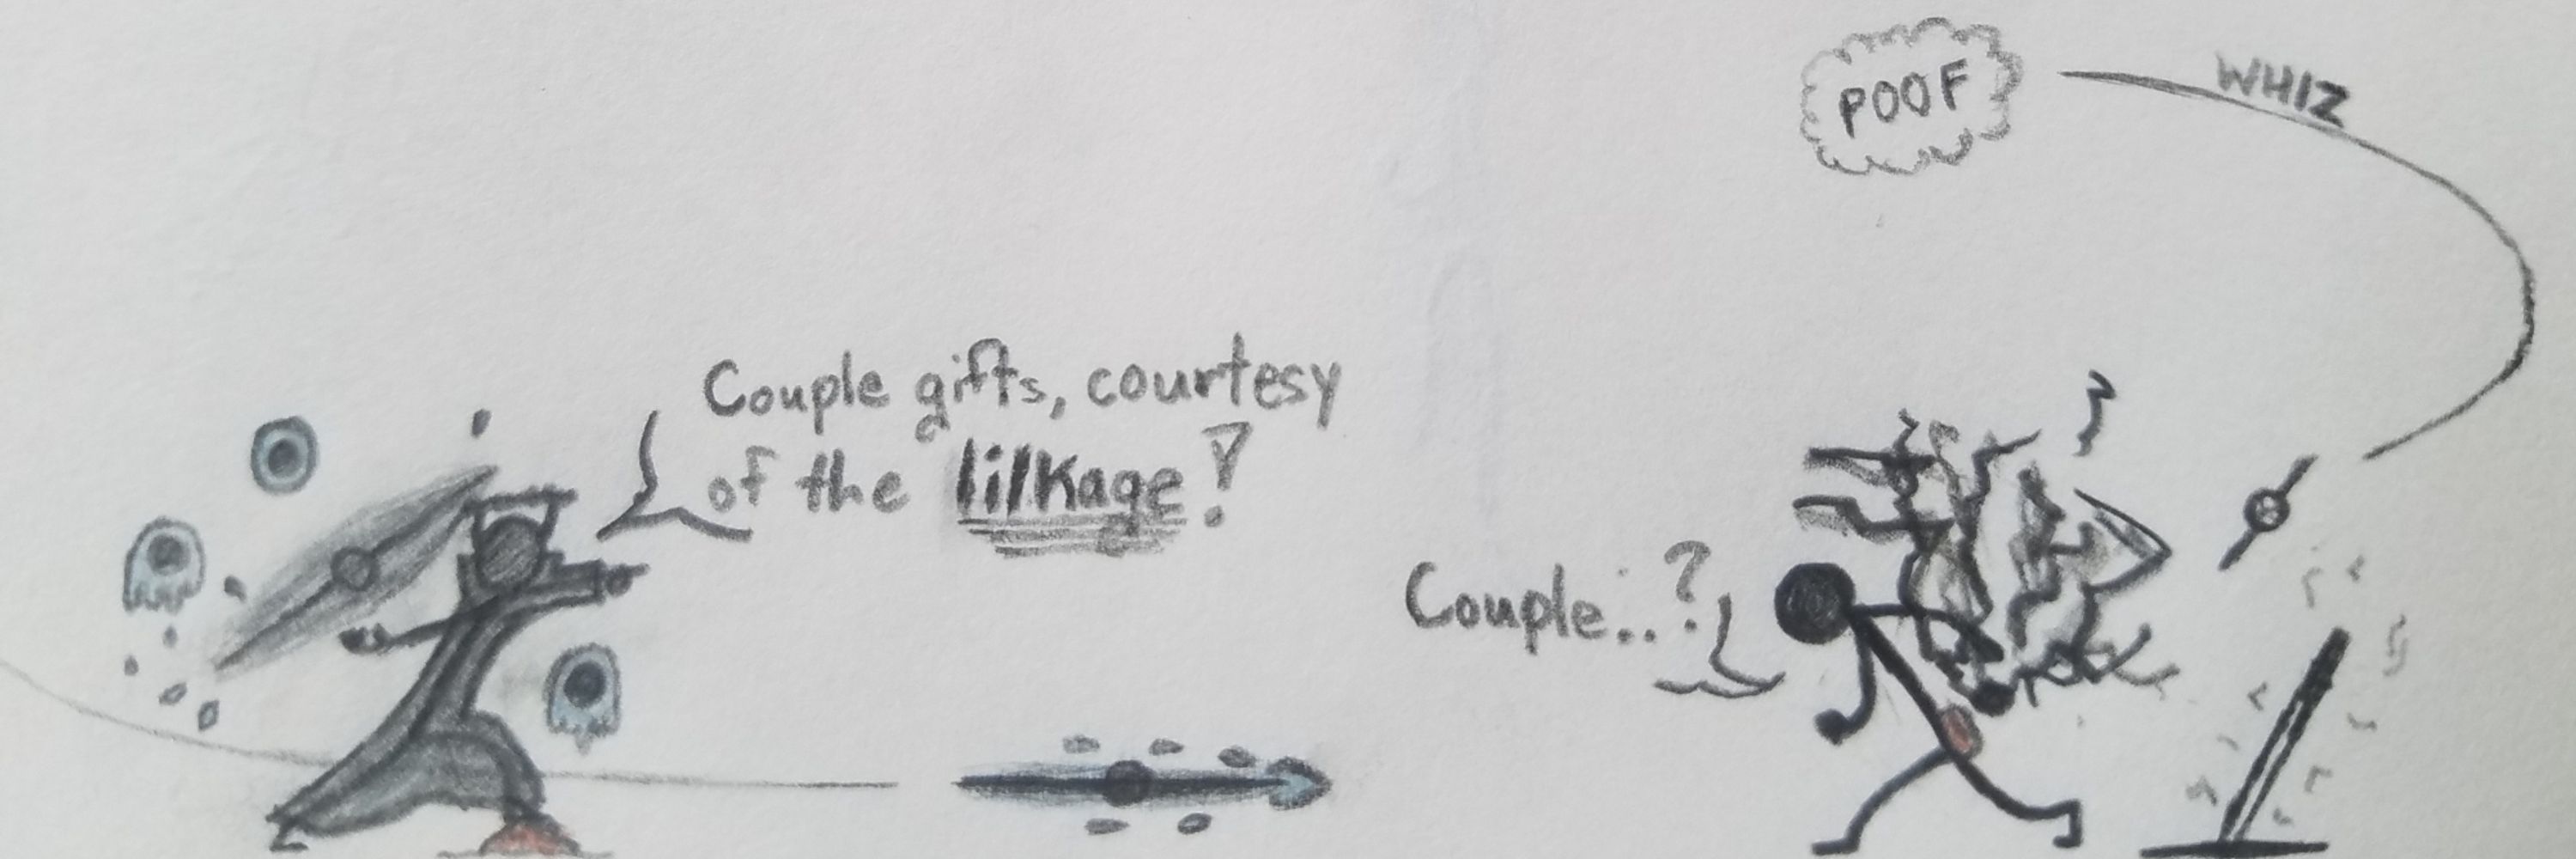 POOF
WHIZ
Couple gifts, courtesy
of the lilKage!
Couple...?